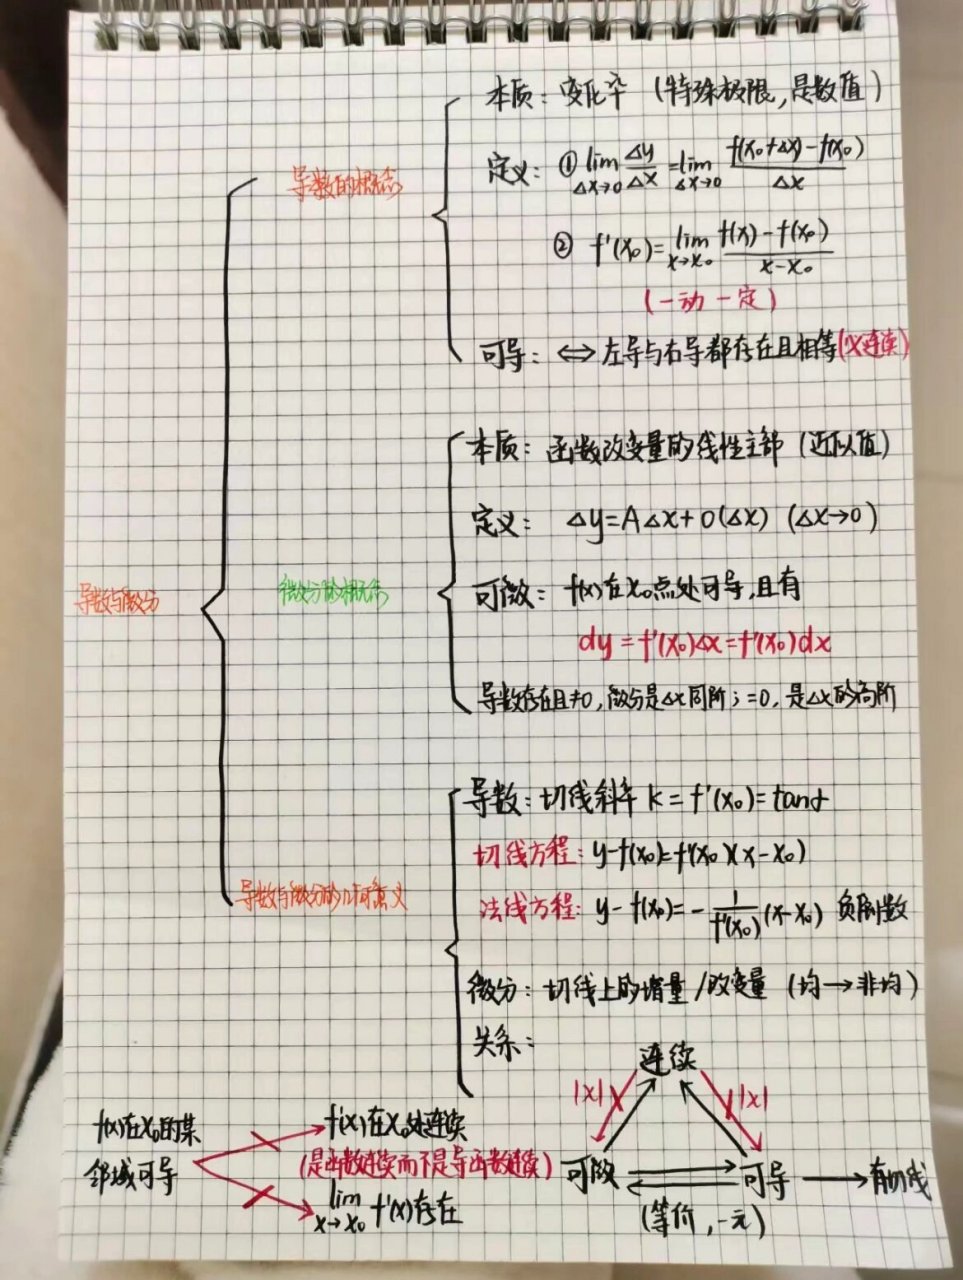 导数与微分
导数的概念
本质：变化率（特殊极限，是数值）
定义：① lim Δx→0 Δy/Δx = lim Δx→0 (f(x₀+Δx)-f(x₀))/Δx
② f'(x₀)=lim x→x₀ (f(x)-f(x₀))/(x-x₀)
（一动一定）
可导：⇔ 左导与右导都存在且相等（必连续）
微分的概念
本质：函数改变量的线性主部（近似值）
定义：Δy=AΔx+o(Δx) (Δx→0)
可微：f(x)在x₀点处可导，且有
dy=f'(x₀)Δx=f'(x₀)dx
导数存在且≠0，微分是Δx同阶；=0，是Δx的高阶
导数与微分的几何意义
导数：切线斜率 k=f'(x₀)=tanα
切线方程：y-f(x₀)=f'(x₀)(x-x₀)
法线方程：y-f(x₀)=-1/f'(x₀)(x-x₀) 负倒数
微分：切线上的增量/改变量（均→非均）
关系：
连续
|x| |x|
可微 可导 → 有切线
（等价，一元）
f(x)在x₀的某
邻域可导
f'(x)在x₀处连续
（是函数连续而不是导函数连续）
lim x→x₀ f'(x)存在